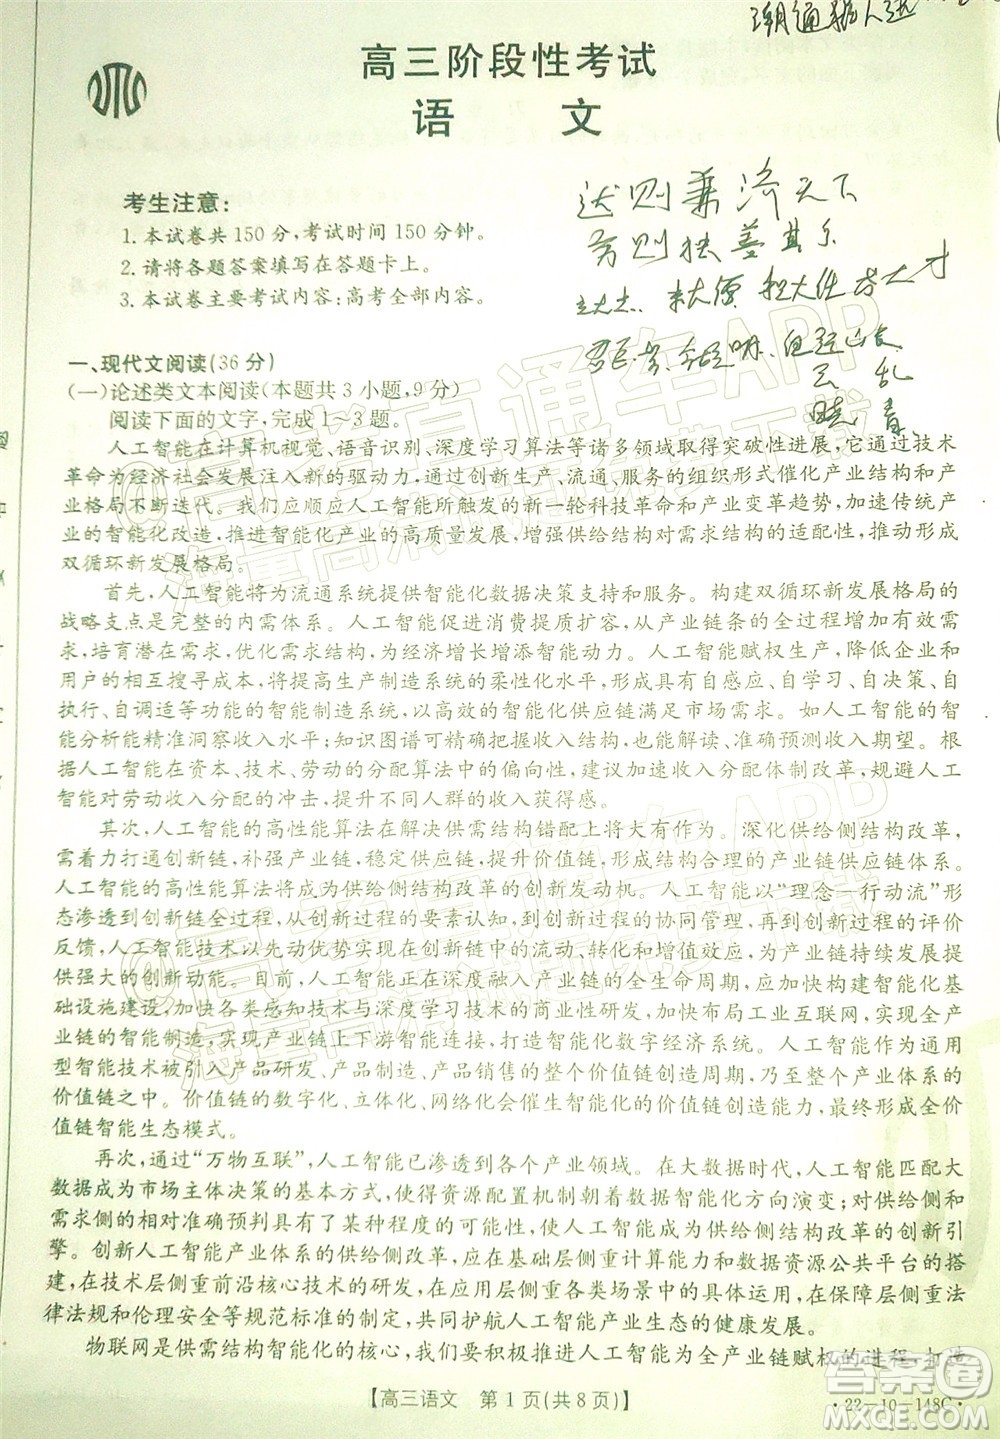 高三阶段性考试
语 文
达则兼济天下
则独善其
考生注意：
1. 本试卷共 150 分，考试时间 150 分钟。
2. 请将各题答案填写在答题卡上。
3. 本试卷主要考试内容：高考全部内容。
一、现代文阅读(36 分)
(一)论述类文本阅读(本题共 3 小题，9 分)
阅读下面的文字，完成 1～3 题。
人工智能在计算机视觉、语音识别、深度学习算法等诸多领域取得突破性进展，它通过技术
革命为经济社会发展注入新的驱动力，通过创新生产、流通、服务的组织形式催化产业结构和产
业格局不断迭代。我们应顺应人工智能所触发的新一轮科技革命和产业变革趋势，加速传统产
业的智能化改造，推进智能化产业的高质量发展，增强供给结构对需求结构的适配性，推动形成
双循环新发展格局。
首先，人工智能将为流通系统提供智能化数据决策支持和服务。构建双循环新发展格局的
战略支点是完整的内需体系。人工智能促进消费提质扩容，从产业链条的全过程增加有效需
求，培育潜在需求，优化需求结构，为经济增长增添智能动力。人工智能赋权生产，降低企业和
用户的相互搜寻成本，将提高生产制造系统的柔性化水平，形成具有自感应、自学习、自决策、自
执行、自调适等功能的智能制造系统，以高效的智能化供应链满足市场需求。如人工智能的智
能分析能精准洞察收入水平；知识图谱可把握收入结构，也能解读、准确预测收入期望。根
据人工智能在资本、技术、劳动的分配算法中的偏向性，建议加速收入分配体制改革，规避人工
智能对劳动收入分配的冲击，提升不同人群的收入获得感。
其次，人工智能的高性能算法在解决供需结构错配上将大有作为。深化供给侧结构改革，
需着力打通创新链，补强产业链，稳定供应链，提升价值链，形成结构合理的产业链供应链体系。
人工智能的高性能算法将成为供给侧结构改革的创新发动机。人工智能以“理念—行动流”形
态渗透到创新链全过程，从创新过程的要素认知，到创新过程的协同管理，再到创新过程的评价
反馈，人工智能技术以先动优势实现在创新链中的流动、转化和增值效应，为产业链持续发展提
供强大的创新动能。目前，人工智能正在深度融入产业链的构建过程，应加快构建智能化基
础设施建设，加快各类感知技术与深度学习技术的商业应用，加快布局工业互联网，实现全产
业链的智能制造，实现产业链上下游智能连接，打造智能化数字经济系统。人工智能作为通用
型智能技术被引入产品研发、产品制造、产品销售的整个价值链创造周期，融入产业体系的
价值链之中。价值链的数字化、立体化、网络化会催生智能化的价值链创造能力，最终形成全价
值链智能生态模式。
再次，通过“万物互联”，人工智能已渗透到各个产业领域。在大数据时代，人工智能匹配大
数据成为市场主体决策的基本方式，使得资源配置机制朝着数据智能化方向演变；对供给侧和
需求侧的相对准确预判具有了某种程度的可能性，使人工智能成为供给侧结构改革的创新引
擎。创新人工智能产业体系的供给侧改革，应在基础层侧重计算能力和数据资源公共平台的搭
建，在技术层侧重前沿核心技术的研发，在应用层侧重细分场景中的具体运用，在保障层侧重法
律法规和伦理安全等规范标准的制定，共同护航人工智能产业生态的健康发展。
物联网是供需结构智能化的核心，我们要积极推进人工智能为全产业链赋权的进程，打造
【高三语文 第 1 页(共 8 页)】
·22-10-148C·